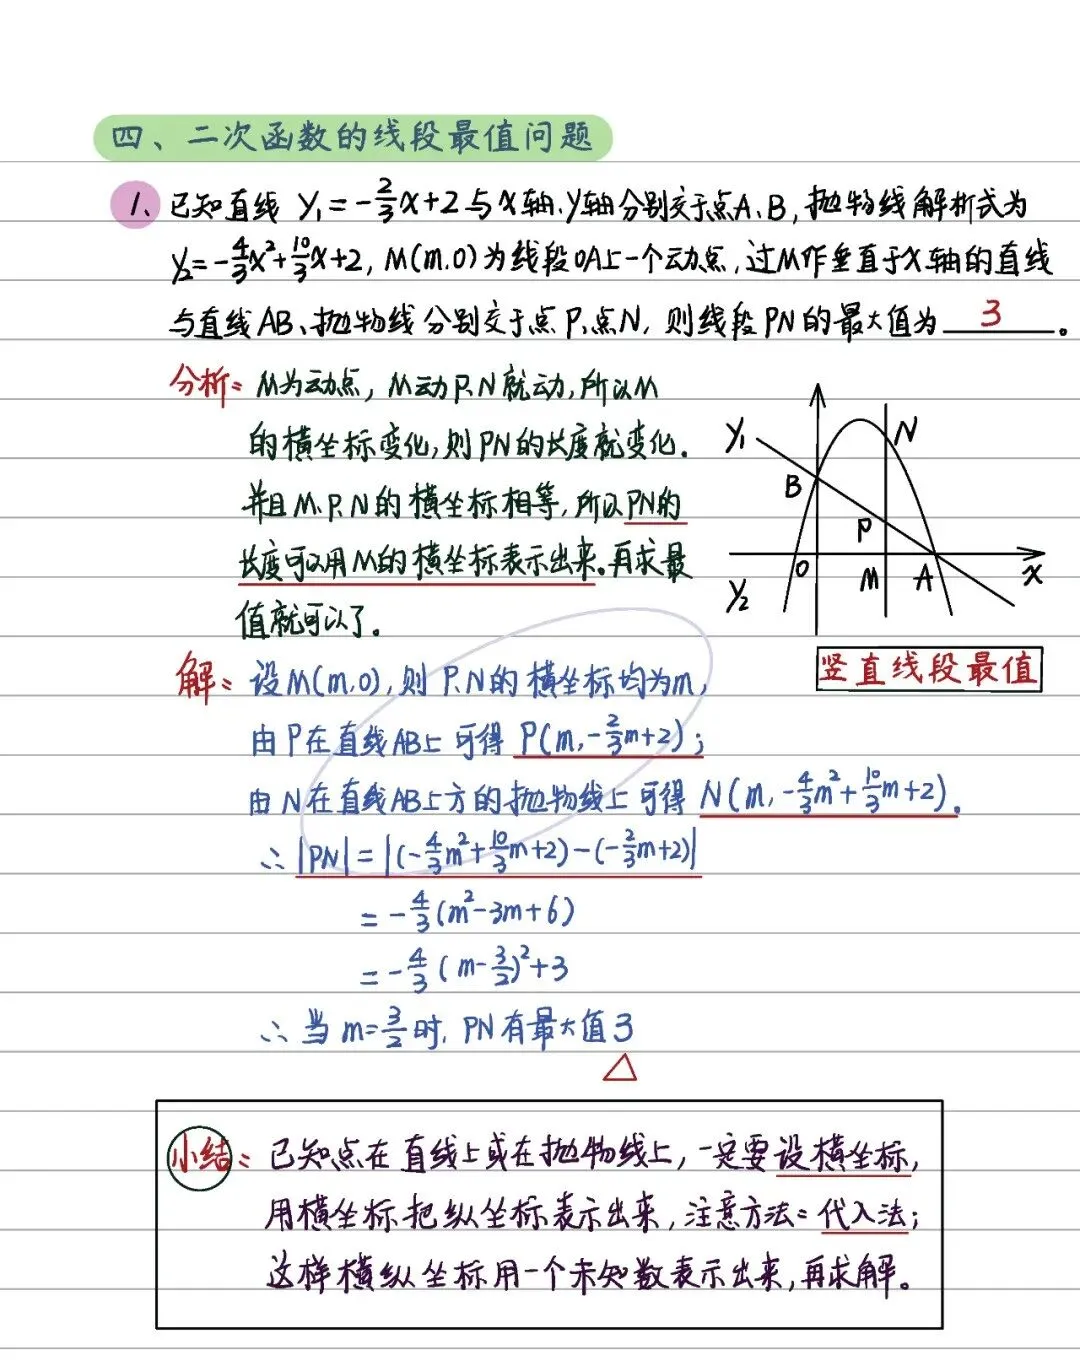 四、二次函数的线段最值问题
1、已知直线 y₁=-2/3x+2与x轴、y轴分别交于点A、B,抛物线解析式为
y₂=-4/3x²+10/3x+2,M(m,0)为线段OA上一个动点,过M作垂直于x轴的直线
与直线AB、抛物线分别交于点P、点N,则线段PN的最大值为 3 。
分析:M为动点,M动P、N就动,所以M
的横坐标变化,则PN的长度就变化.
并且M、P、N的横坐标相等,所以PN的
长度可以用M的横坐标表示出来.再求最
值就可以了.
y₁
N
B
P
O
M
A
x
y₂
竖直线段最值
解:设M(m,0),则P、N的横坐标均为m,
由P在直线AB上可得 P(m,-2/3m+2);
由N在直线AB上方的抛物线上可得 N(m,-4/3m²+10/3m+2).
∴|PN|=|(-4/3m²+10/3m+2)-(-2/3m+2)|
=-4/3(m²-3m+6)
=-4/3(m-3/2)²+3
∴当m=3/2时,PN有最大值3
小结:已知点在直线上或在抛物线上,一定要设横坐标,
用横坐标把纵坐标表示出来,注意方法:代入法;
这样横纵坐标用一个未知数表示出来,再求解。